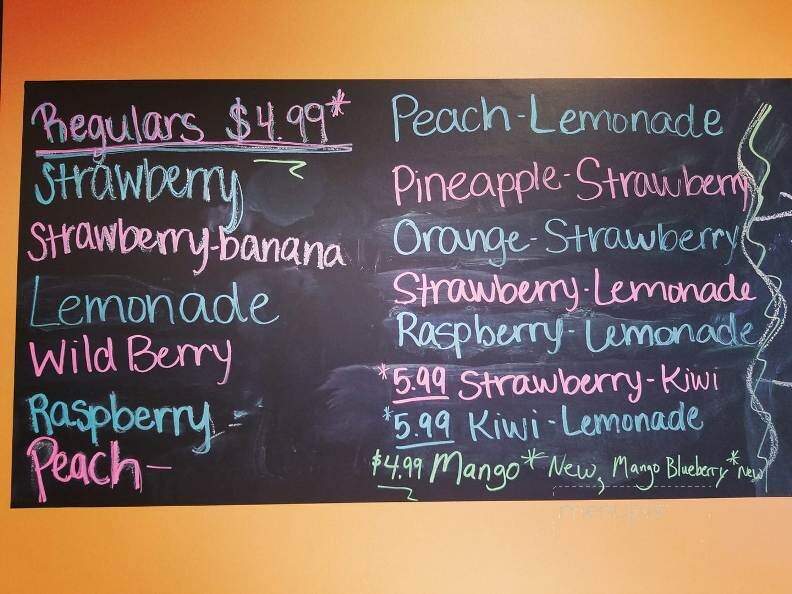 Regulars $4.99*
Strawberry
Strawberry-banana
Lemonade
Wild Berry
Raspberry
Peach-
Peach-Lemonade
Pineapple-Strawberry
Orange-Strawberry
Strawberry-Lemonade
Raspberry-Lemonade
*5.99 Strawberry-Kiwi
*5.99 Kiwi-Lemonade
$4.99 Mango* New, Mango Blueberry* new